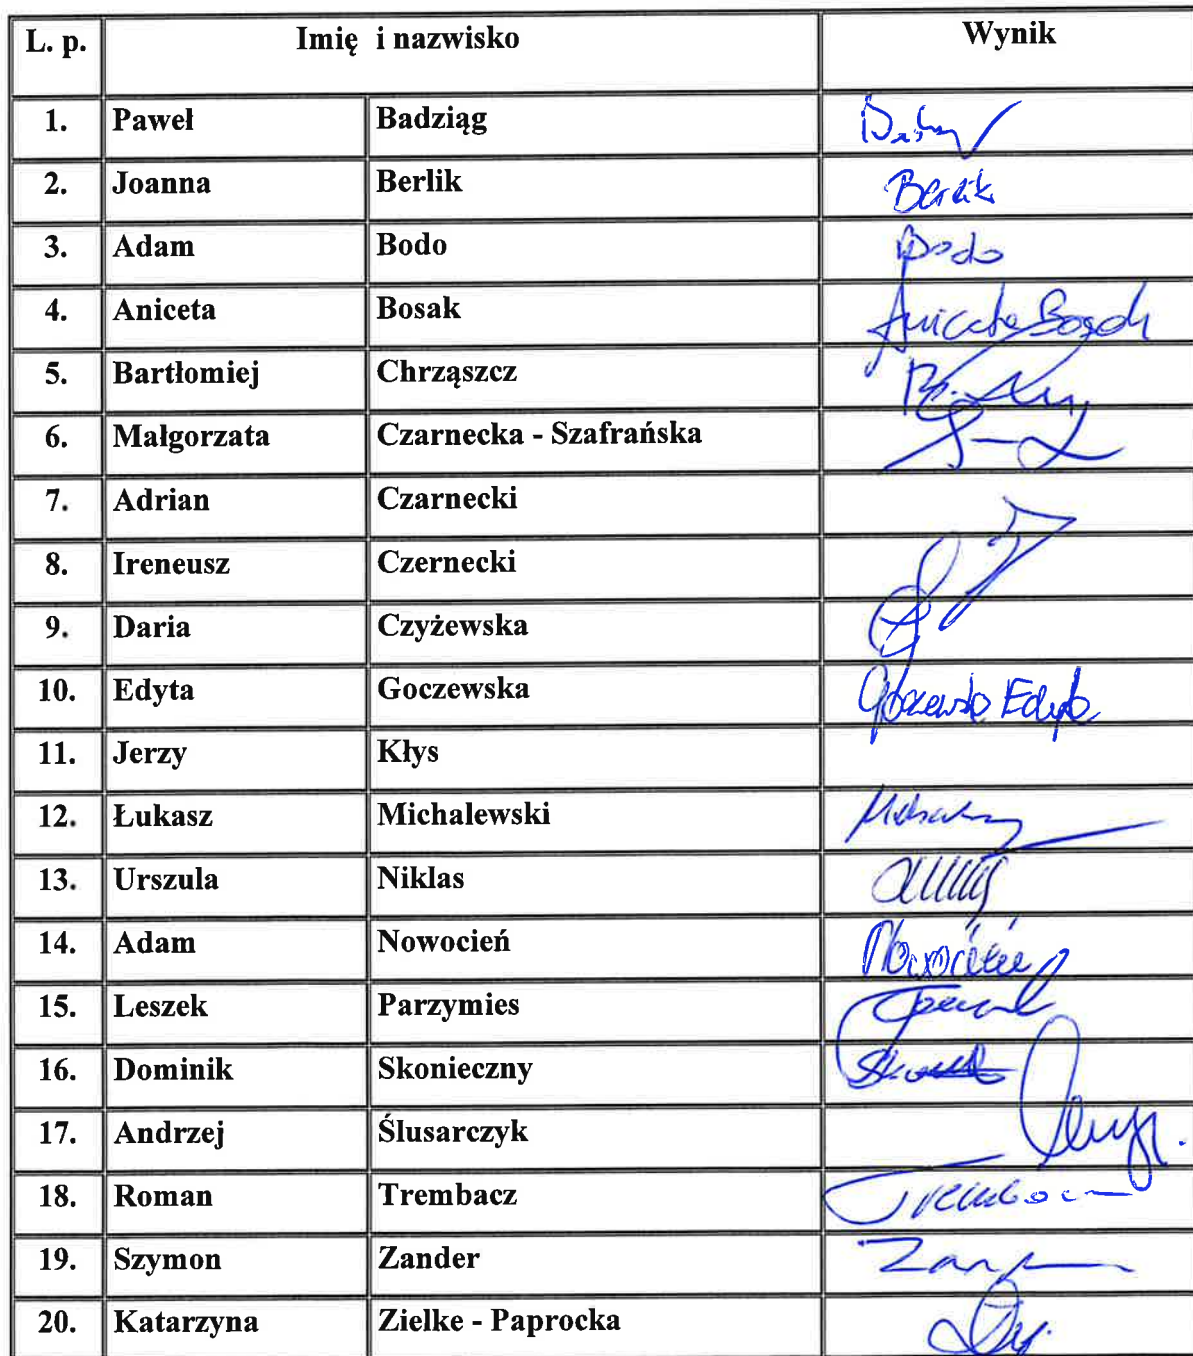 L. p. Imię i nazwisko Wynik
1. Paweł Badziąg
2. Joanna Berlik Berlik
3. Adam Bodo Bodo
4. Aniceta Bosak Aniceta Bosak
5. Bartłomiej Chrząszcz
6. Małgorzata Czarnecka - Szafrańska
7. Adrian Czarnecki
8. Ireneusz Czernecki
9. Daria Czyżewska
10. Edyta Goczewska Goczewska Edyta
11. Jerzy Kłys
12. Łukasz Michalewski
13. Urszula Niklas
14. Adam Nowocień Nowocień
15. Leszek Parzymies
16. Dominik Skonieczny
17. Andrzej Ślusarczyk
18. Roman Trembacz
19. Szymon Zander
20. Katarzyna Zielke - Paprocka